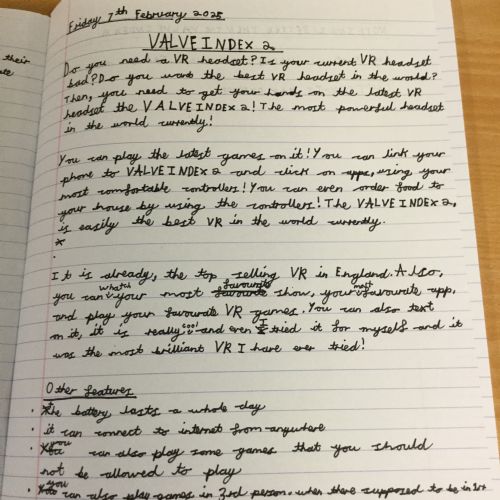 their
Friday 7th February 2025
VALVE INDEX 2
Do you need a VR headset? Is your current VR headset
bad? Do you want the best VR headset in the world?
Then, you need to get your hands on the latest VR
headset the VALVE INDEX 2! The most powerful headset
in the world currently!
You can play the latest games on it! You can link your
phone to VALVE INDEX 2 and click on apps, using your
most comfortable controllers! You can even order food to
your house by using the controllers! The VALVE INDEX 2,
is easily the best VR in the world currently.
It is already, the top selling VR in England. Also,
you can whatch your most favourite show, your most favourate app,
and play your favourate VR games. You can also text
on it, it is really cool! and even I tried it for myself and it
was the most brilliant VR I have ever tried!
Other features
• the battery lasts a whole day
• it can connect to internet from anywhere
• you can also play some games that you should
not be allowed to play
• you can also play games in 3rd person. when there supposed to be in 1st